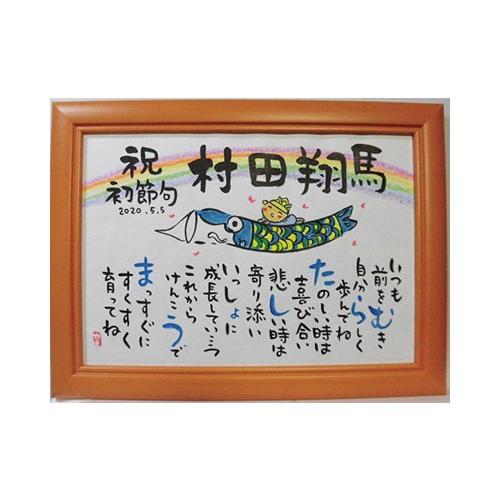 祝
初節句
2020.5.5
村田翔馬
いつも
前をむき
自分らしく
歩んでね
たのしい時は
喜び合い
悲しい時は
寄り添い
いっしょに
成長していこう
これから
けんこうで
まっすぐに
すくすく
育ってね